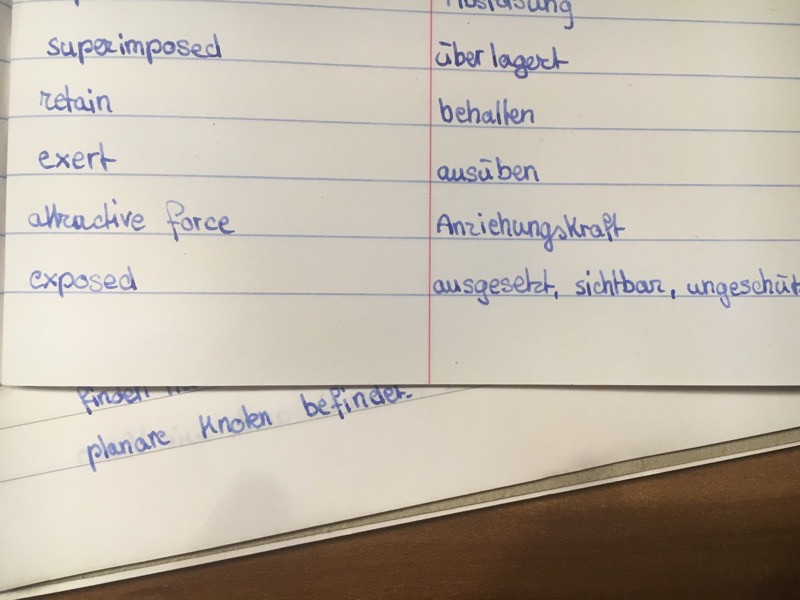 superimposed überlagert
retain behalten
exert ausüben
attractive force Anziehungskraft
exposed ausgesetzt, sichtbar,
finden
planare Knoten befindet.